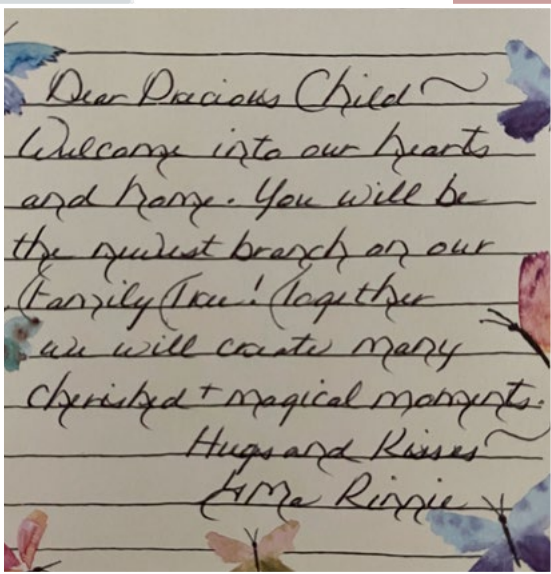 Dear Precious Child ~
Welcome into our hearts
and home. You will be
the newest branch on our
Family Tree! Together
we will create many
cherished + magical moments.
Hugs and Kisses ~
Rinnie